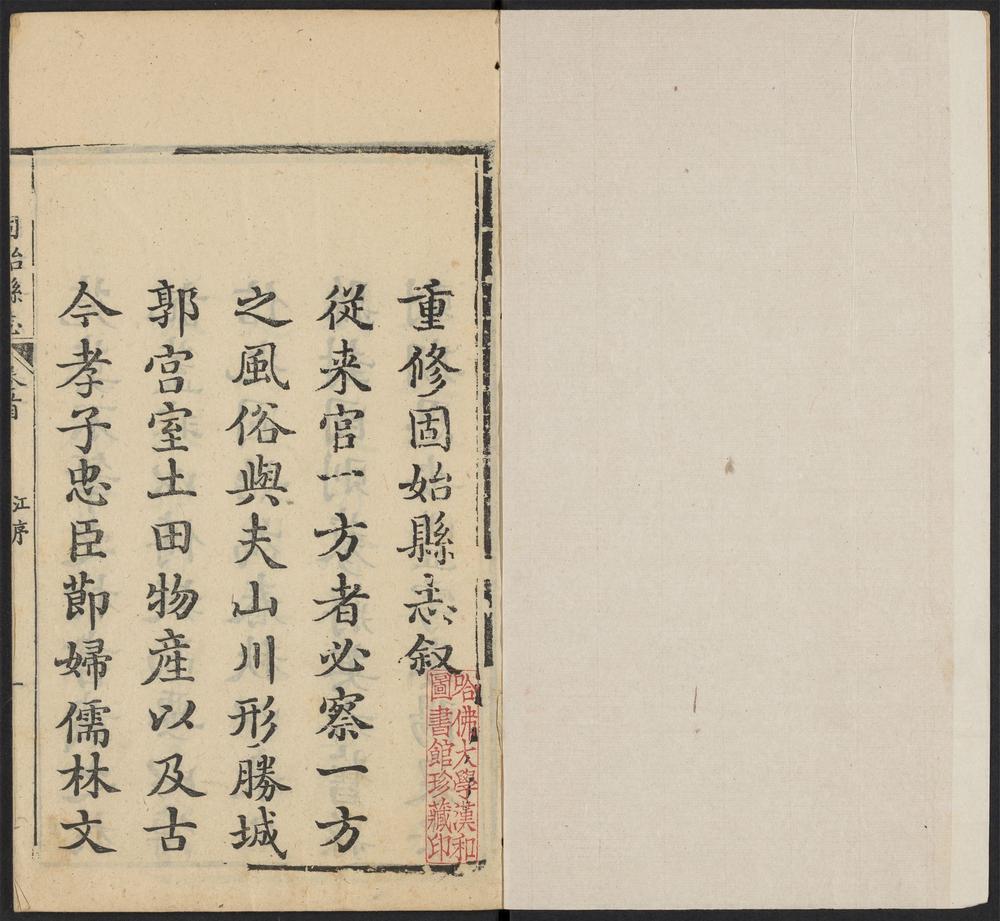 重修固始縣志叙
従来官一方者必察一方
之風俗與夫山川形勝城
郭宫室土田物産以及古
今孝子忠臣節婦儒林文
固始縣志
卷首
江序
一
哈佛大學漢和
圖書館珍藏印